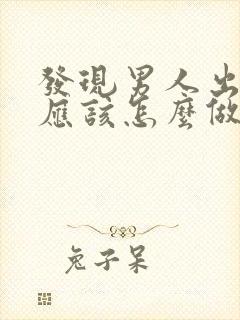 發現男人出
應該怎麼做
兔子呆